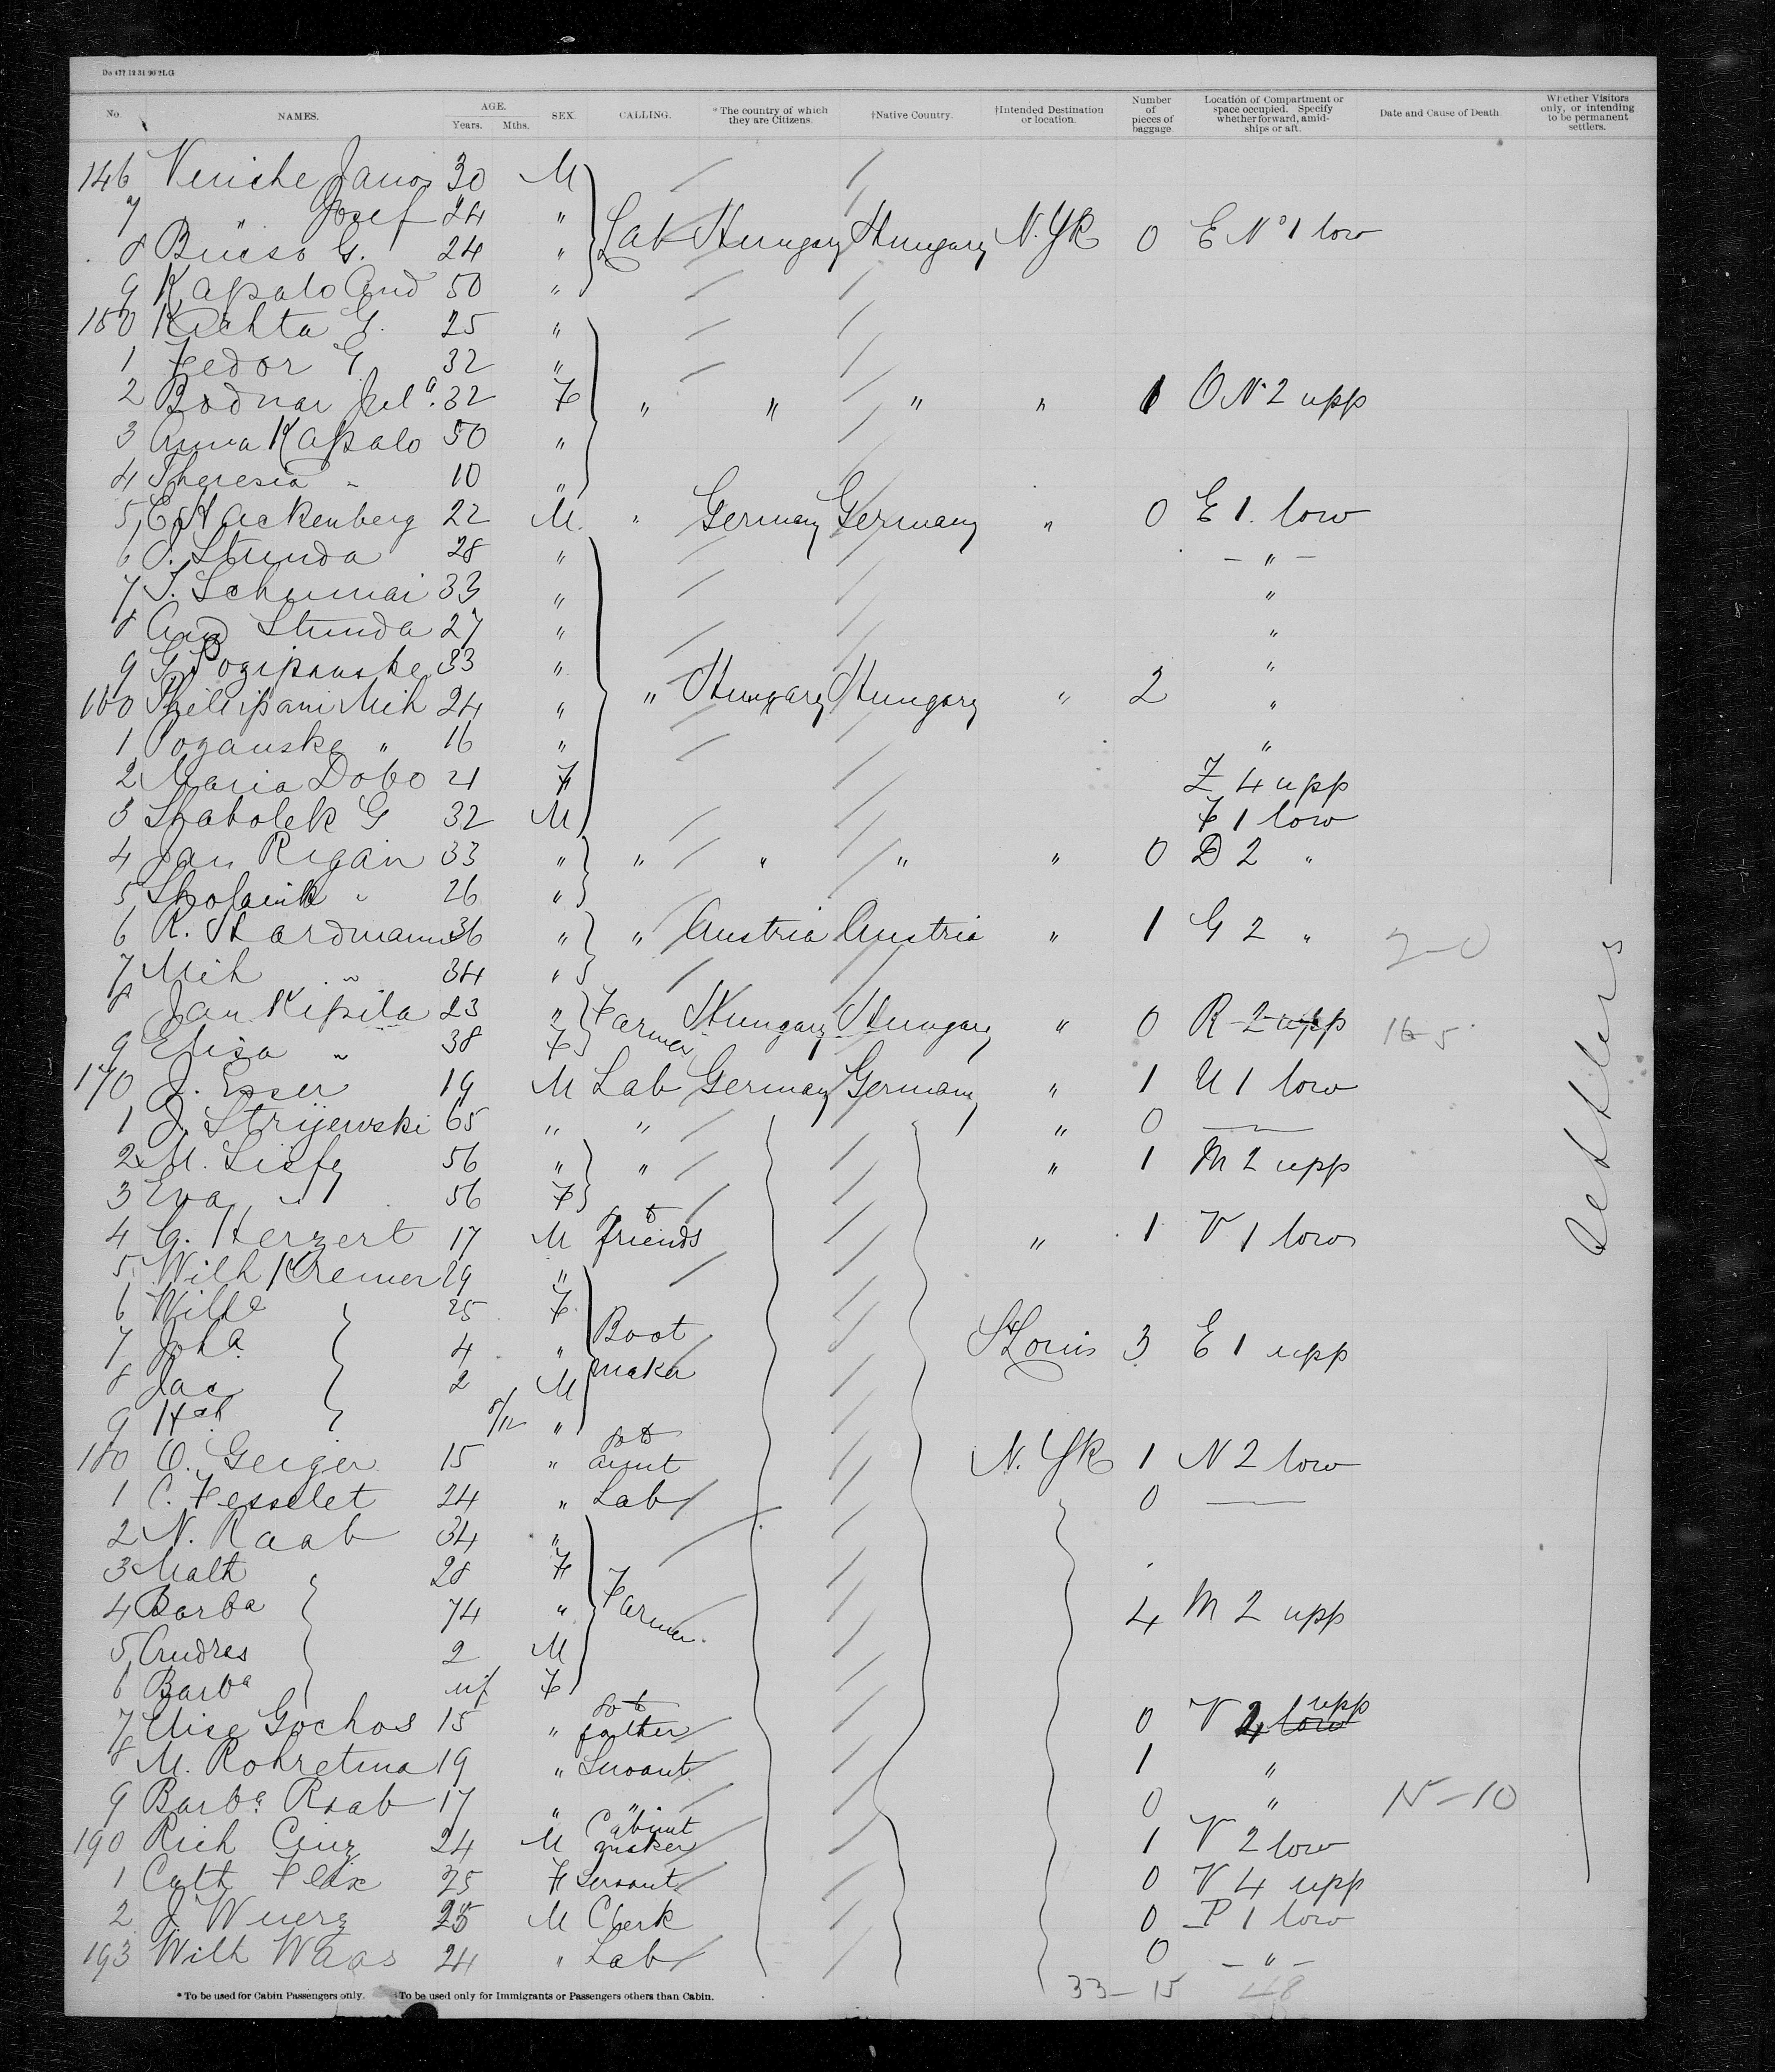 Do 477 12 31 96 2LG
No. NAMES. AGE. Years. Mths. SEX. CALLING. *The country of which they are Citizens. †Native Country. †Intended Destination or location. Number of pieces of baggage. Location of Compartment or space occupied. Specify whether forward, amidships or aft. Date and Cause of Death. Whether Visitors only, or intending to be permanent settlers.
146 Janos 30 M
7 " Josef 24 "
8 G. 24 " Lab Hungary Hungary N.Yk 0 E No 1 low
9 Kapalo And 50 "
150 Kichta G. 25 "
1 Fedor G 32 "
2 Bodnar Jula. 32 F " " " " 1 O N. 2 upp
3 Anna Kapalo 50 "
4 Theresia " 10 "
5 Hackenberg 22 M. " Germany Germany " 0 E 1. low
6 Stunda 28 " — " —
7 33 " "
8 And Stunda 27 " "
9 33 " "
160 Mih 24 " " Hungary Hungary " 2 "
1 " 16 " "
2 Maria Dobo 21 F Z 4 upp
3 G 32 M F 1 low
4 Jan Rigan 33 " " " " " 0 D 2 "
5 " 26 "
6 R. Hardmann 36 " " Austria Austria " 1 G 2 " 2-0
7 Mih " 34 "
8 Jan Kipila 23 " Farmer Hungary Hungary " 0 R 2 upp
9 Elisa " 38 F
170 J. Esser 19 M Lab Germany Germany " 1 U 1 low
1 J. Strijewski 65 " " " 0 —
2 M. 56 " " " 1 M 2 upp
3 Eva " 56 F
4 G. Herzert 17 M to friends " 1 V 1 low
5 Wilh Kremer 29 "
6 Wilhe 25 F
7 Joha. 4 " Boot maker St Louis 3 E 1 upp
8 Jac 2 M
9 Hch 8/12 "
180 O. Geiger 15 " to aunt N. Yk 1 N 2 low
1 C. Fesselet 24 " Lab 0 —
2 N. Raab 34 "
3 Math 28 F
4 Barba 74 " Farmer 4 M 2 upp
5 Andras 2 M
6 Barba inf F
7 Elise Gochos 15 " to father 0 V 2 low upp
8 M. Rohretma 19 " Servant 1 "
9 Barba. Raab 17 " " 0 " 15-10
190 Rich 24 M Cabinet maker 1 V 2 low
1 Cath Felix 25 F Servant 0 V 4 upp
2 J Wuerz 25 M Clerk 0 P 1 low
193 Wilh Waas 24 " Lab 0 — " —
Settlers
33-15 48
*To be used for Cabin Passengers only. †To be used only for Immigrants or Passengers others than Cabin.